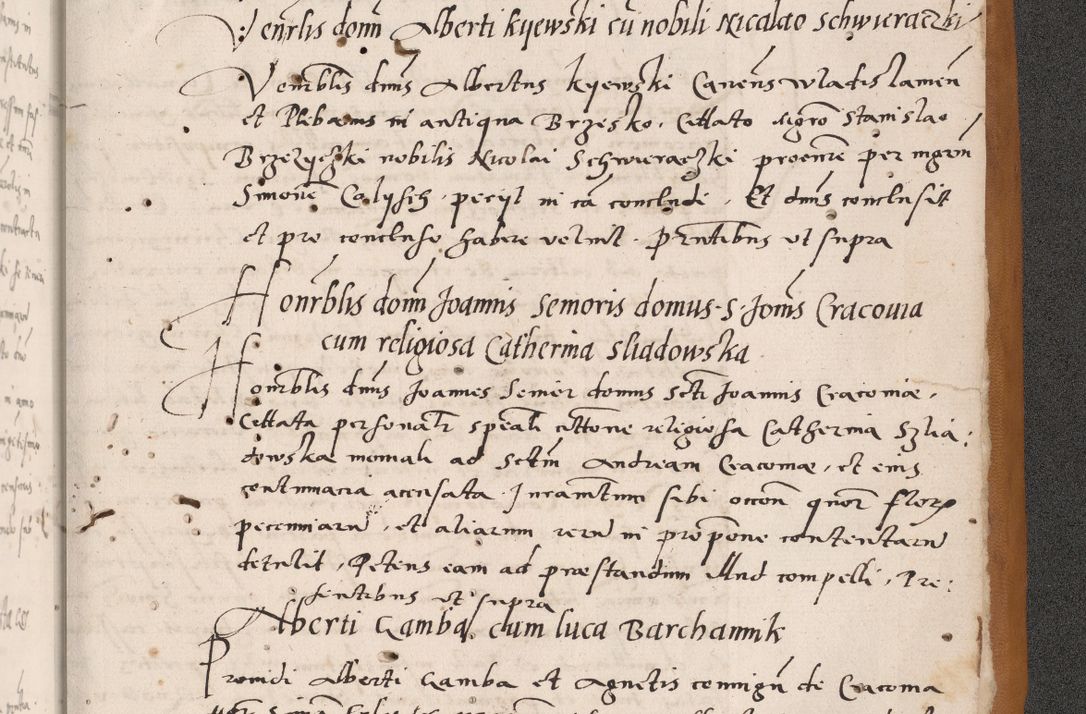 Venrlis domi Alberti Kyewski cu nobili Nicolao Schwieraczki
Venrblis dnus Albertus Kyewski Canens Wladislamen
et Plebanus in antiqua Brzesko, Citato Mgro Stanislao
Brzezyczki nobilis Nicolai Schwieraczki procure per mgrm
Simone Calysch petiit in ca concludi, Et dnus conclusit
et pro concluso habere voluit. Pntibus ut supra
Honrblis domi Joannis Semoris domus S. Joanis Cracovia
cum religiosa Catherina Sliadowska
Honrblis dnus Joannes Senior domus Scti Joannis Cracoviae,
Citata personalr speali cittone religiosa Catherina Szlia:
dowska moniali ad Sctm Andream Cracoviae, et eius
contumacia accusata. Iuramtum sibi occon quor flor
pecuniaru, et aliarum reru in propone contentaru
detulit, Petens eam ad praestandum illud compelli, Pre:
sentibus ut supra
Alberti Gamba cum luca Barchannik
Providi Alberti Gamba et Agnetis coniugu de Cracovia